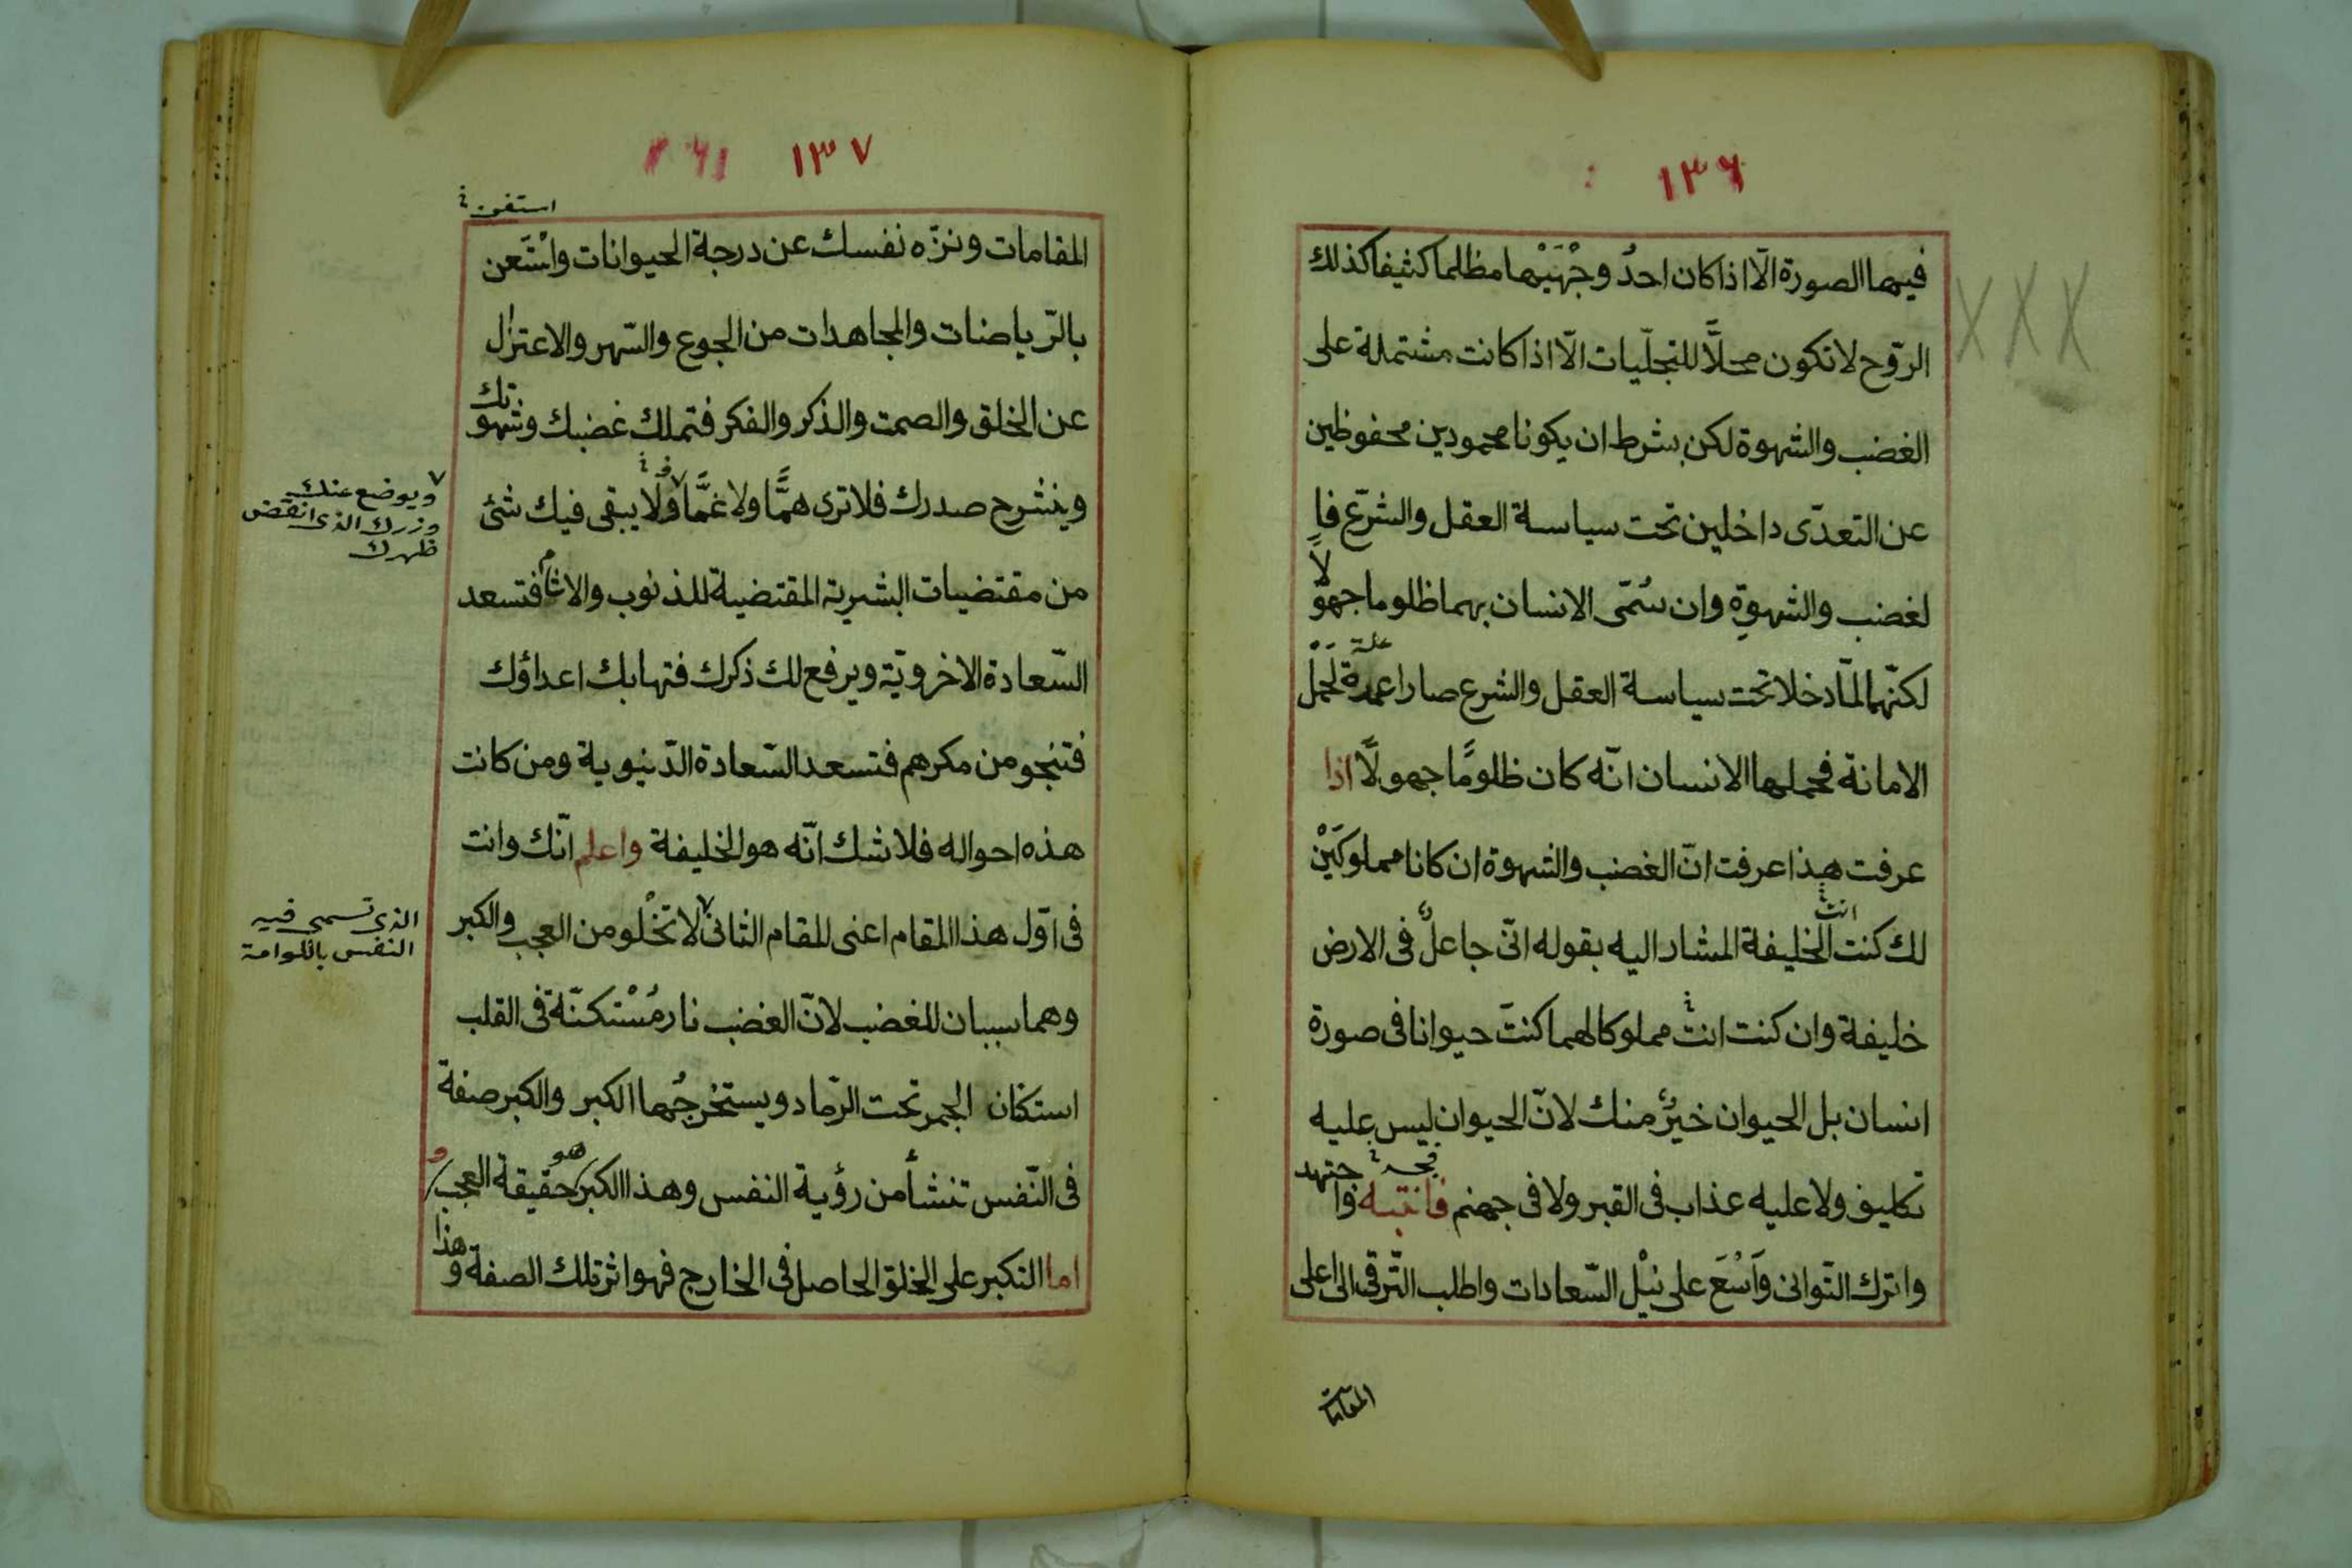 ١٣٦
فيها الصورة الّا اذا كان احدُ وجْهَيْها مظلما كثيفا كذلك
الرّوح لا تكون محلّاً للتجلّيات الّا اذا كانت مشتملة على
الغضب والشهوة لكن بشرط ان يكونا محمودين محفوظين
عن التعدّى داخلين تحت سياسة العقل والشرّع فاِ
لغضب والشهوةِ وان سُمّى الانسان بهما ظلوما جهولاً
علة
لكنّهما لمّا دخلا تحت سياسة العقل والشرع صارا عمدة لحَمْل
الامانة فحملها الانسان انّه كان ظلومًا جهولًا اذا
عرفت هذا عرفت انّ الغضب والشهوة ان كانا مملوكَيْن
انت
لك كنت الخليفة المشار اليه بقوله انّى جاعلٌ فى الارض
خليفة وان كنت انت مملوكا لهما كنتَ حيوانا فى صورة
انسان بل الحيوان خيرٌ منك لانّ الحيوان ليس عليه
تكليف ولا عليه عذاب فى القبر ولا فى جهنم فانتبه واجتهد
واترك التّوانى وَاسْعَ على نيْل السّعادات واطلب التّرقى الى اعلى
المقامات
١٣٧
المقامات ونزّه نفسك عن درجة الحيوانات واسْتَعن
بالرّياضات والمجاهدات من الجوع والسّهر والاعتزال
عن الخلق والصمت والذكر والفكر فتملك غضبك وشهوتك
وينشرح صدرك فلا ترى همًّا ولا غمًّا ولا يبقى فيك شئ
ويوضع عنك
وزرك الذى انقض
ظهرك
من مقتضيات البشرية المقتضية للذنوب والاثام فتسعد
السّعادة الاخرويّة ويرفع لك ذكرك فتهابك اعداؤك
فتنجو من مكرهم فتسعد السّعادة الدّنيوية ومن كانت
هذه احواله فلا شك انّه هو الخليفة واعلم انّك وانت
فى اوّل هذا المقام اعنى المقام الثانى لا تخْلو من العجب والكبر
الذى تسمى فيه
النفس باللوامة
وهما سببان للغضب لانّ الغضب نار مُسْتكنّة فى القلب
استكنان الجمر تحت الرّماد ويستخرجُها الكبر والكبر صفة
فى النّفس تنشأ من رؤية النفس وهذا الكبر هو حقيقة العجب و
اما التكبر على الخلق الحاصل فى الخارج فهو اثر تلك الصفة وهذا